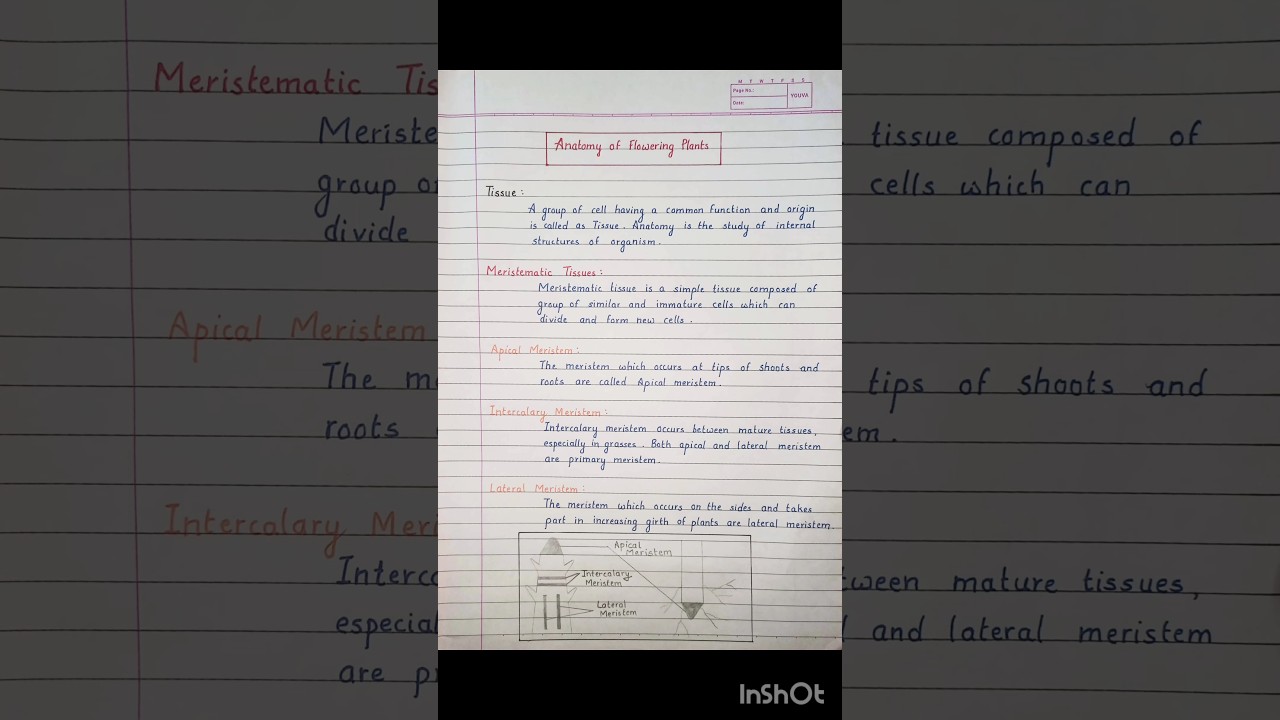 M T W T F S S
Page No.:
Date:
YOUVA
Anatomy of Flowering Plants
Tissue :
A group of cell having a common function and origin
is called as Tissue. Anatomy is the study of internal
structures of organism.
Meristematic Tissues :
Meristematic tissue is a simple tissue composed of
group of similar and immature cells which can
divide and form new cells.
Apical Meristem :
The meristem which occurs at tips of shoots and
roots are called Apical meristem.
Intercalary Meristem :
Intercalary meristem occurs between mature tissues,
especially in grasses. Both apical and lateral meristem
are primary meristem.
Lateral Meristem :
The meristem which occurs on the sides and takes
part in increasing girth of plants are lateral meristem.
Apical
Meristem
Intercalary
Meristem
Lateral
Meristem
Meristematic Tis
Meriste
tissue composed of
group o
cells which can
divide
Apical Meristem
The m
tips of shoots and
roots
em.
Intercalary Meri
Interc
tween mature tissues,
especial
and lateral meristem
are p
InShOt